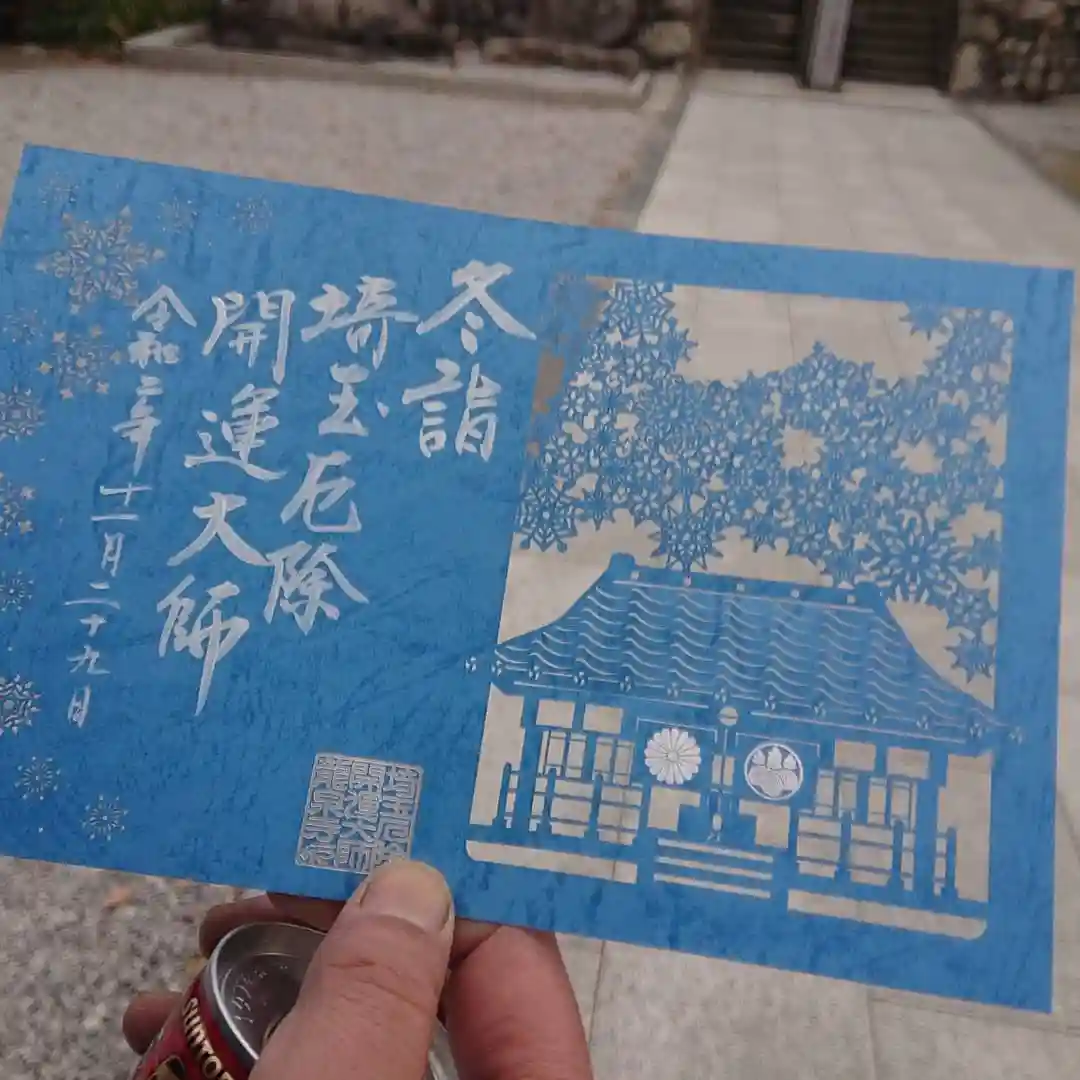 冬詣
埼玉厄除
開運大師
令和二年十一月二十九日
埼玉厄除
開運大師
龍泉寺
SUNTO